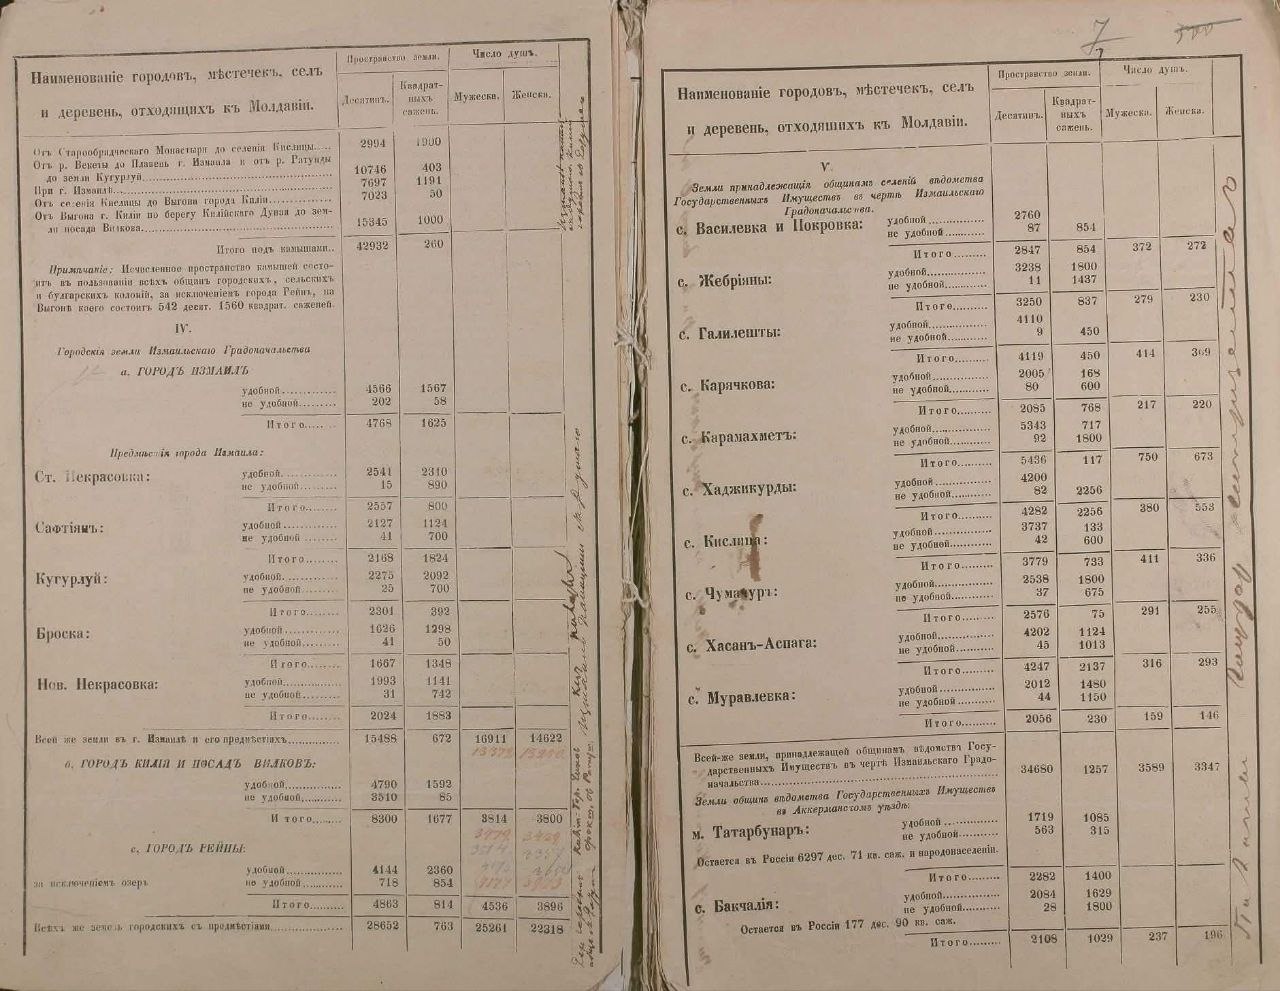 Наименованіе городовъ, мѣстечекъ, селъ и деревень, отходящихъ къ Молдавіи.
Пространство земли. Число душъ.
Десятинъ. Квадратныхъ сажень. Мужеска. Женска.
Отъ Старообрадческаго Монастыря до селенія Кислицы..... 2994 1900
Отъ р. Векеты до Плавень г. Измаила и отъ р. Ратунды
до земли Кугурлуй 10746 403
При г. Измаилѣ 7697 1191
Отъ селенія Кислицы до Выгона города Киліи 7023 50
Отъ Выгона г. Киліи по берегу Килійскаго Дуная до зем-
ли посада Вилкова 15345 1000
Итого подъ камышами.. 42932 260
Примѣчаніе: Исчисленное пространство камышей состо-
итъ въ пользованіи всѣхъ общинъ городскихъ, сельскихъ
и булгарскихъ колоній, за исключеніемъ города Рейнъ, на
Выгонѣ коего состоитъ 542 десят. 1560 квадрат. саженей.
IV.
Городскія земли Измаильскаго Градоначальства
а. ГОРОДЪ ИЗМАИЛЪ
удобной 4566 1567
не удобной 202 58
Итого 4768 1625
Предмѣстія города Измаила:
Ст. Некрасовка:
удобной 2541 2310
не удобной 15 890
Итого 2557 800
Сафтіянъ:
удобной 2127 1124
не удобной 41 700
Итого 2168 1824
Кугурлуй:
удобной 2275 2092
не удобной 25 700
Итого 2301 392
Броска:
удобной 1626 1298
не удобной 41 50
Итого 1667 1348
Нов. Некрасовка:
удобной 1993 1141
не удобной 31 742
Итого 2024 1883
Всей же земли въ г. Измаилѣ и его предмѣстіяхъ 15488 672 16911 14622
в. ГОРОДЪ КИЛІЯ И ПОСАДЪ ВИЛКОВЪ:
удобной 4790 1592
не удобной 3510 85
Итого 8300 1677 3814 3800
с. ГОРОДЪ РЕЙНЫ:
удобной 4144 2360
за исключеніемъ озеръ не удобной 718 854
Итого 4863 814 4536 3896
Всѣхъ же земель городскихъ съ предмѣстіями 28652 763 25261 22318
7
500
Наименованіе городовъ, мѣстечекъ, селъ и деревень, отходящихъ къ Молдавіи.
Пространство земли. Число душъ.
Десятинъ. Квадратныхъ сажень. Мужеска. Женска.
V.
Земли принадлежащія общинамъ селеній вѣдомства
Государственныхъ Имуществъ въ чертѣ Измаильскаго
Градоначальства.
с. Василевка и Покровка:
удобной 2760
не удобной 87 854
Итого 2847 854 372 272
с. Жебріяны:
удобной 3238 1800
не удобной 11 1437
Итого 3250 837 279 230
с. Галилешты:
удобной 4110
не удобной 9 450
Итого 4119 450 414 369
с. Карячкова:
удобной 2005 168
не удобной 80 600
Итого 2085 768 217 220
с. Карамахметъ:
удобной 5343 717
не удобной 92 1800
Итого 5436 117 750 673
с. Хаджикурды:
удобной 4200
не удобной 82 2256
Итого 4282 2256 380 553
с. Кислица:
удобной 3737 133
не удобной 42 600
Итого 3779 733 411 336
с. Чумачуръ:
удобной 2538 1800
не удобной 37 675
Итого 2576 75 291 255
с. Хасанъ-Аспага:
удобной 4202 1124
не удобной 45 1013
Итого 4247 2137 316 293
с. Муравлевка:
удобной 2012 1480
не удобной 44 1150
Итого 2056 230 159 146
Всей-же земли, принадлежащей общинамъ вѣдомствъ Госу-
дарственныхъ Имуществъ в чертѣ Измаильскаго Градо-
начальства 34680 1257 3589 3347
Земли общинъ вѣдомства Государственныхъ Имуществъ
въ Аккерманскомъ уѣздѣ:
м. Татарбунаръ:
удобной 1719 1085
не удобной 563 315
Остается въ Россіи 6297 дес. 71 кв. саж. и народонаселеніи.
Итого 2282 1400
с. Бакчалія:
удобной 2084 1629
не удобной 28 1800
Остается въ Россіи 177 дес. 90 кв. саж.
Итого 2108 1029 237 196